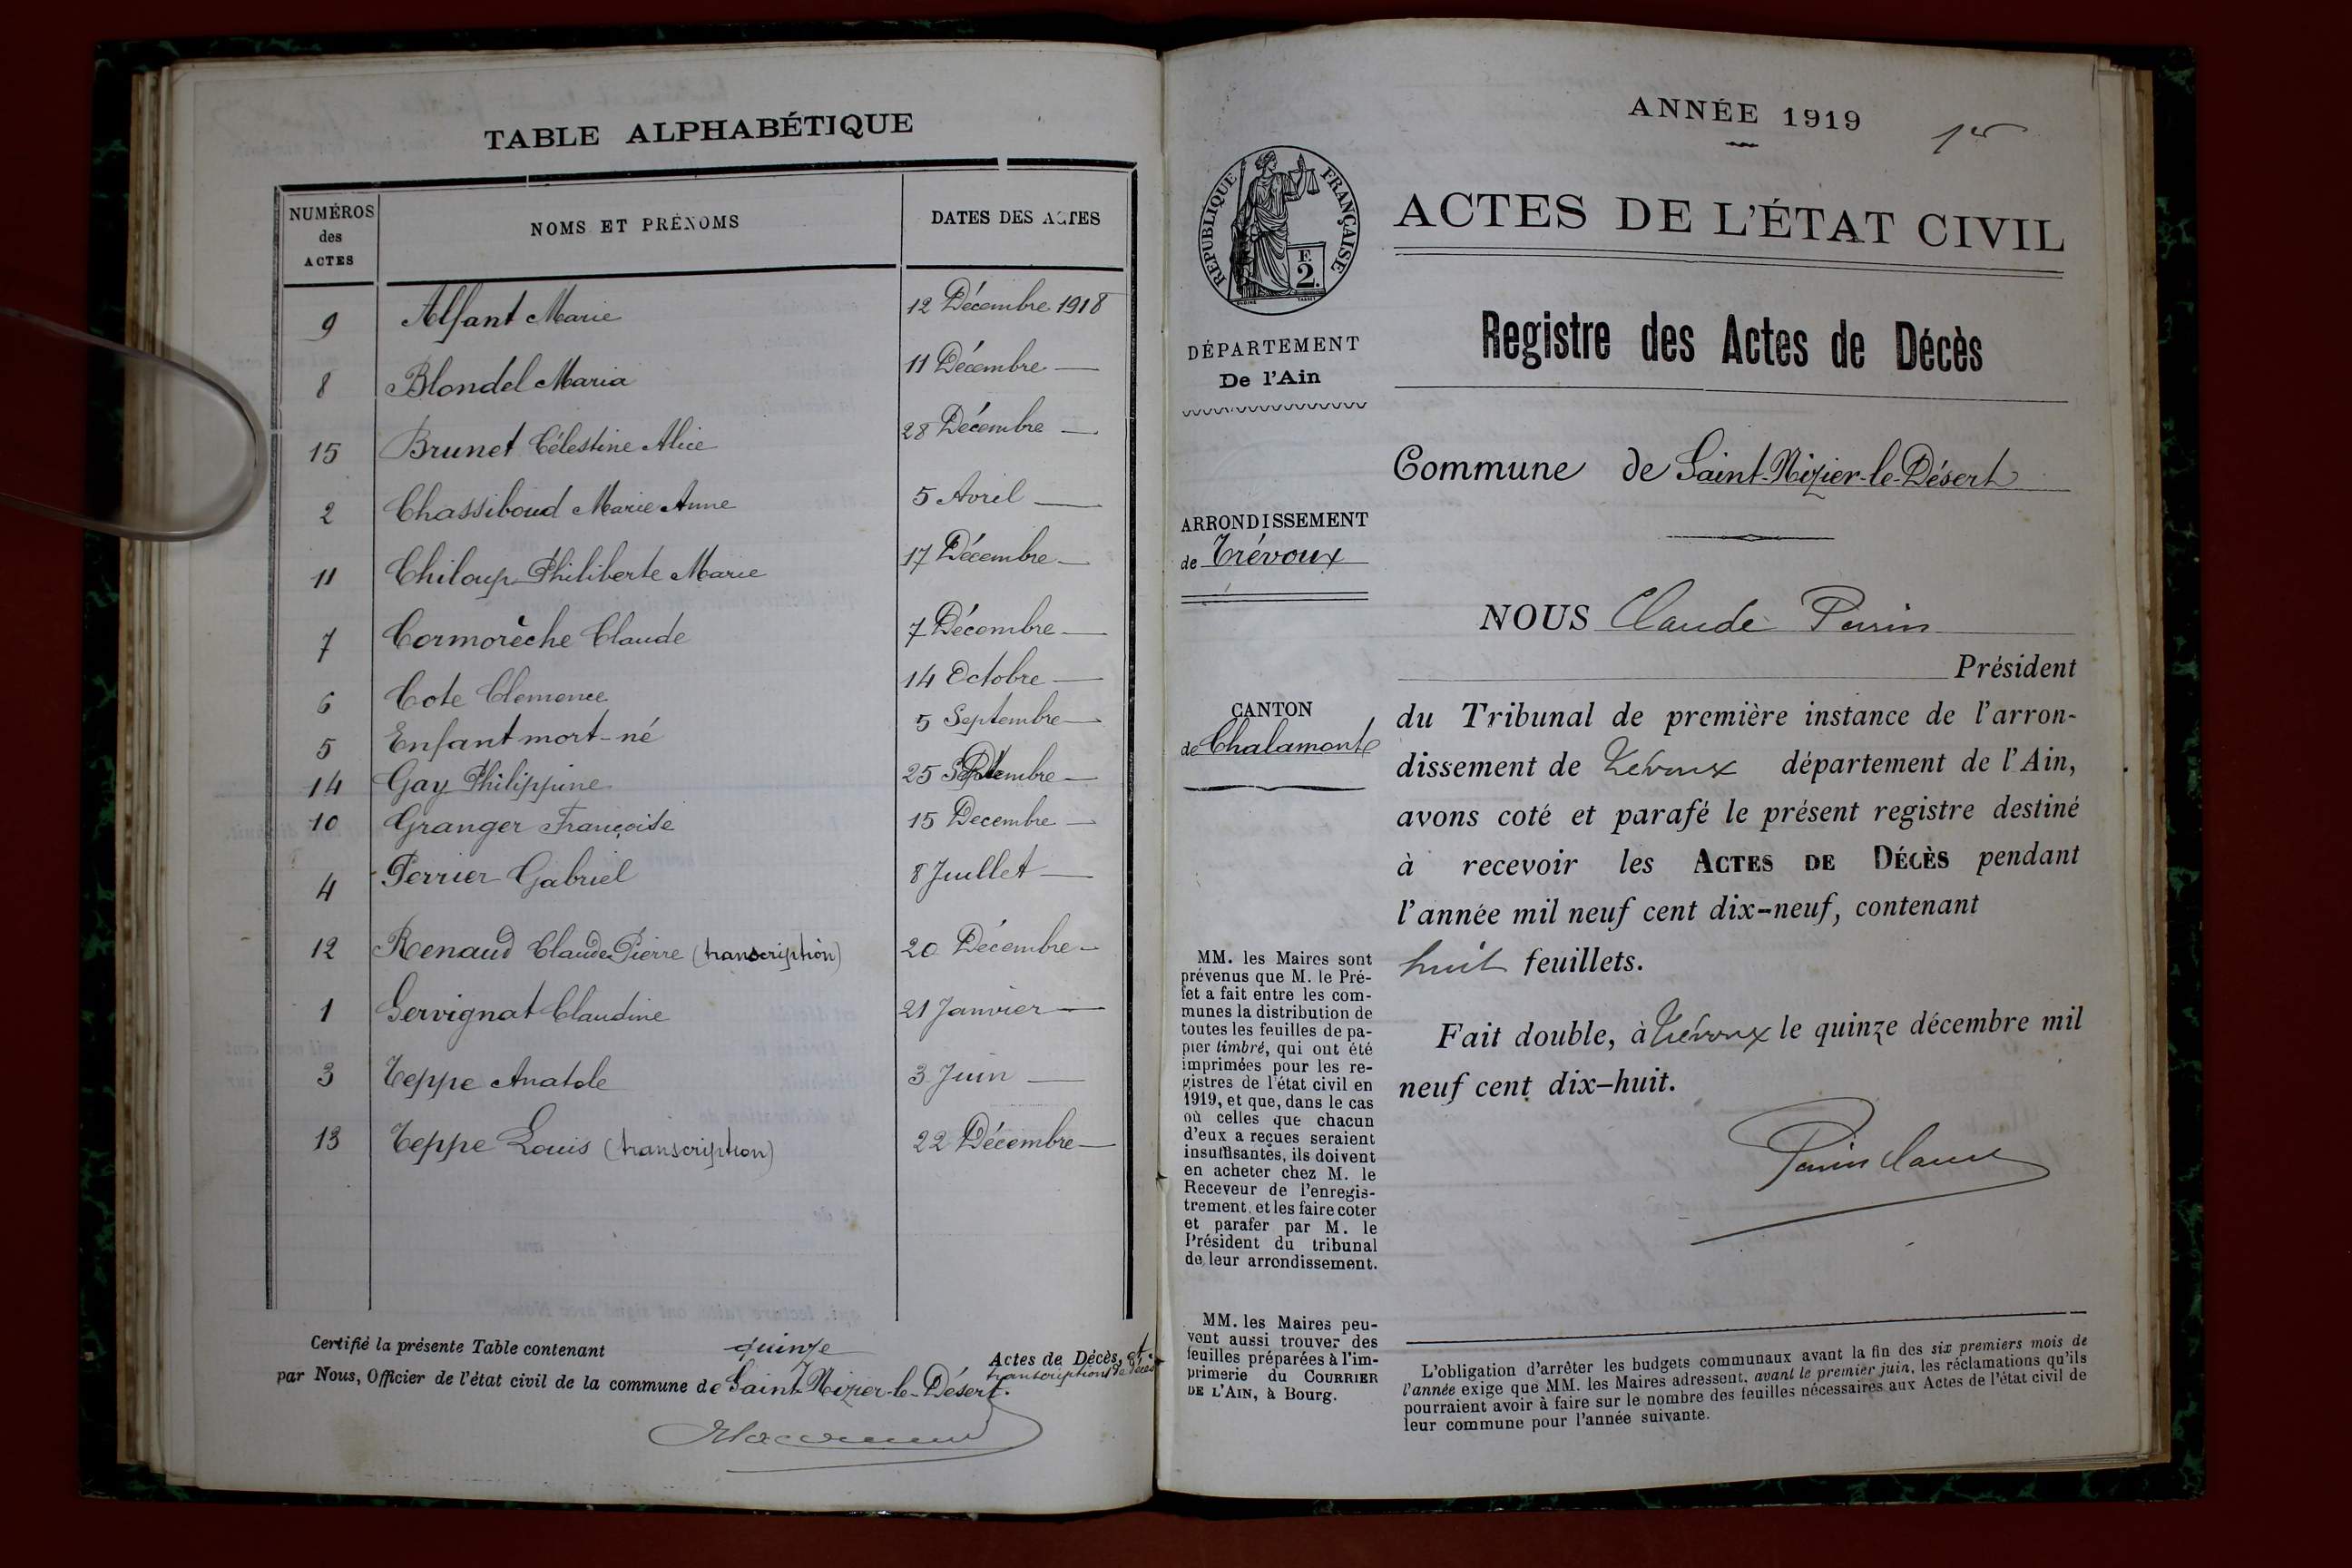 TABLE ALPHABÉTIQUE
NUMÉROS des ACTES NOMS ET PRÉNOMS DATES DES ACTES
9 Alfant Marie 12 Décembre 1918
8 Blondel Maria 11 Décembre —
15 Brunet Célestine Alice 28 Décembre —
2 Chassiboud Marie Anne 5 Avril —
11 Chiloup Philiberte Marie 17 Décembre —
7 Cormorèche Claude 7 Décembre —
6 Cote Clemence 14 Octobre —
5 Enfant mort-né 5 Septembre —
14 Gay Philippine 25 —
10 Granger Françoise 15 Decembre —
4 Perrier Gabriel 8 Juillet —
12 Renaud Claude Pierre (transcription) 20 Décembre —
1 Servignat Claudine 21 Janvier —
3 Teppe Anatole 3 Juin —
13 Teppe Louis (transcription) 22 Décembre —
Certifié la présente Table contenant quinze Actes de Décès, et transcriptions de décès
par Nous, Officier de l'état civil de la commune de Saint-Nizier-le-Désert.
ANNÉE 1919
1er
RÉPUBLIQUE FRANÇAISE
F. 2.
ACTES DE L'ÉTAT CIVIL
DÉPARTEMENT
De l'Ain
Registre des Actes de Décès
Commune de Saint-Nizier-le-Désert
ARRONDISSEMENT
de Trévoux
CANTON
de Chalamont
NOUS Claude Perrin
Président
du Tribunal de première instance de l'arron-
dissement de Trévoux département de l'Ain,
avons coté et parafé le présent registre destiné
à recevoir les ACTES DE DÉCÈS pendant
l'année mil neuf cent dix-neuf, contenant
huit feuillets.
Fait double, à Trévoux le quinze décembre mil
neuf cent dix-huit.
Perrin Claude
MM. les Maires sont
prévenus que M. le Pré-
fet a fait entre les com-
munes la distribution de
toutes les feuilles de pa-
pier timbré, qui ont été
imprimées pour les re-
gistres de l'état civil en
1919, et que, dans le cas
où celles que chacun
d'eux a reçues seraient
insuffisantes, ils doivent
en acheter chez M. le
Receveur de l'enregis-
trement, et les faire coter
et parafer par M. le
Président du tribunal
de leur arrondissement.
MM. les Maires peu-
vent aussi trouver des
feuilles préparées à l'im-
primerie du COURRIER
DE L'AIN, à Bourg.
L'obligation d'arrêter les budgets communaux avant la fin des six premiers mois de
l'année exige que MM. les Maires adressent, avant le premier juin, les réclamations qu'ils
pourraient avoir à faire sur le nombre des feuilles nécessaires aux Actes de l'état civil de
leur commune pour l'année suivante.